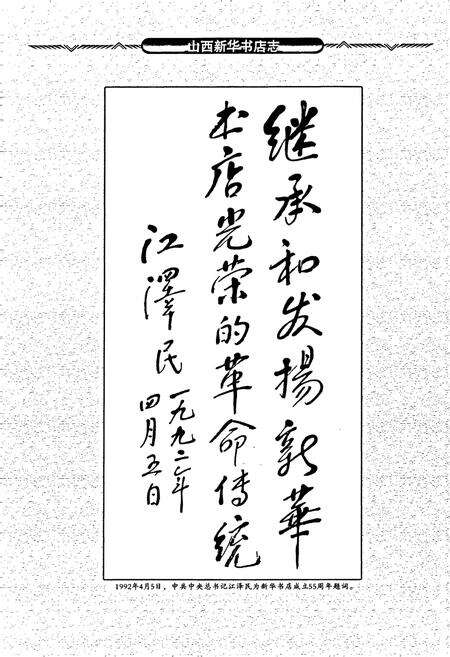 山西新华书店志
继承和发揚新華
书店光荣的革命傳統
江澤民
一九九二年
四月五日
1992年4月5日，中共中央总书记江泽民为新华书店成立55周年题词。